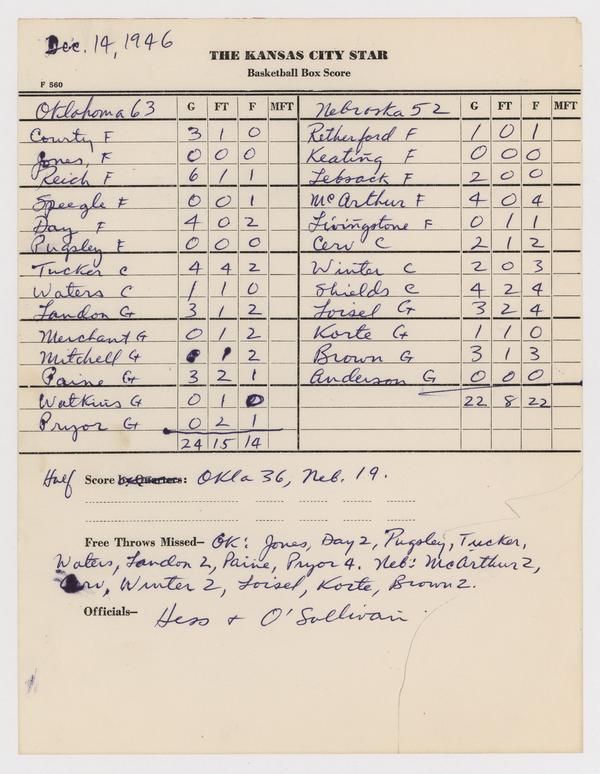 Dec. 14, 1946
THE KANSAS CITY STAR
Basketball Box Score
F 560
Oklahoma 63 G FT F MFT Nebraska 52 G FT F MFT
Courty F 3 1 0 Retherford F 1 0 1
Jones, F 0 0 0 Keating F 0 0 0
Reich F 6 1 1 Lebsack F 2 0 0
Speegle F 0 0 1 McArthur F 4 0 4
Day F 4 0 2 Livingstone F 0 1 1
Pugsley F 0 0 0 Cerv C 2 1 2
Tucker C 4 4 2 Winter C 2 0 3
Waters C 1 1 0 Shields C 4 2 4
Landon G 3 1 2 Loisel G 3 2 4
Merchant G 0 1 2 Korte G 1 1 0
Mitchell G 1 2 Brown G 3 1 3
Paine G 3 2 1 Anderson G 0 0 0
Watkins G 0 1 0 22 8 22
Pryor G 0 2 1
24 15 14
Half Score by Quarters: Okla 36, Neb. 19.
Free Throws Missed— OK: Jones, Day 2, Pugsley, Tucker,
Waters, Landon 2, Paine, Pryor 4. Neb: McArthur 2,
Cerv, Winter 2, Loisel, Korte, Brown 2.
Officials— Hess + O'Sullivan